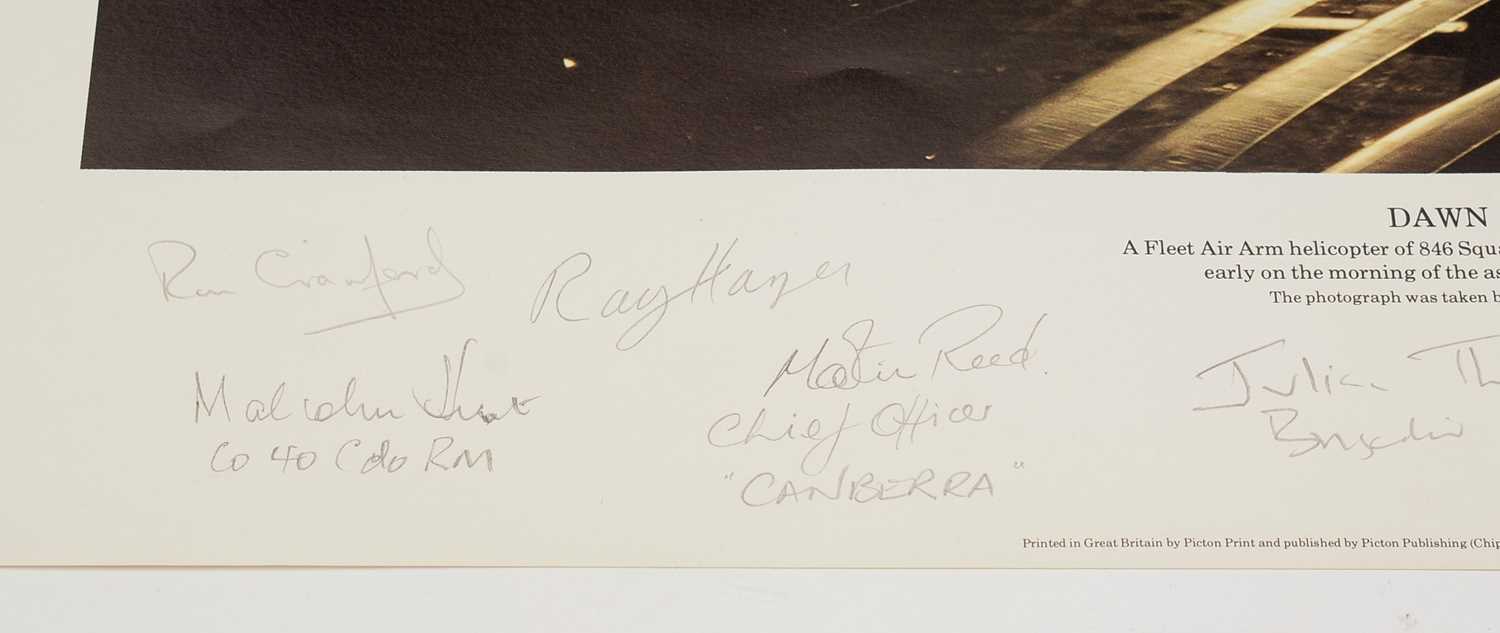 DAWN
A Fleet Air Arm helicopter of 846 Squa
early on the morning of the as
The photograph was taken b
Ron Crawford
Ray Hayer
Malcolm Hunt
CO 40 Cdo RM
Martin Reed.
Chief Officer
"CANBERRA"
Julian Th
Printed in Great Britain by Picton Print and published by Picton Publishing (Chip